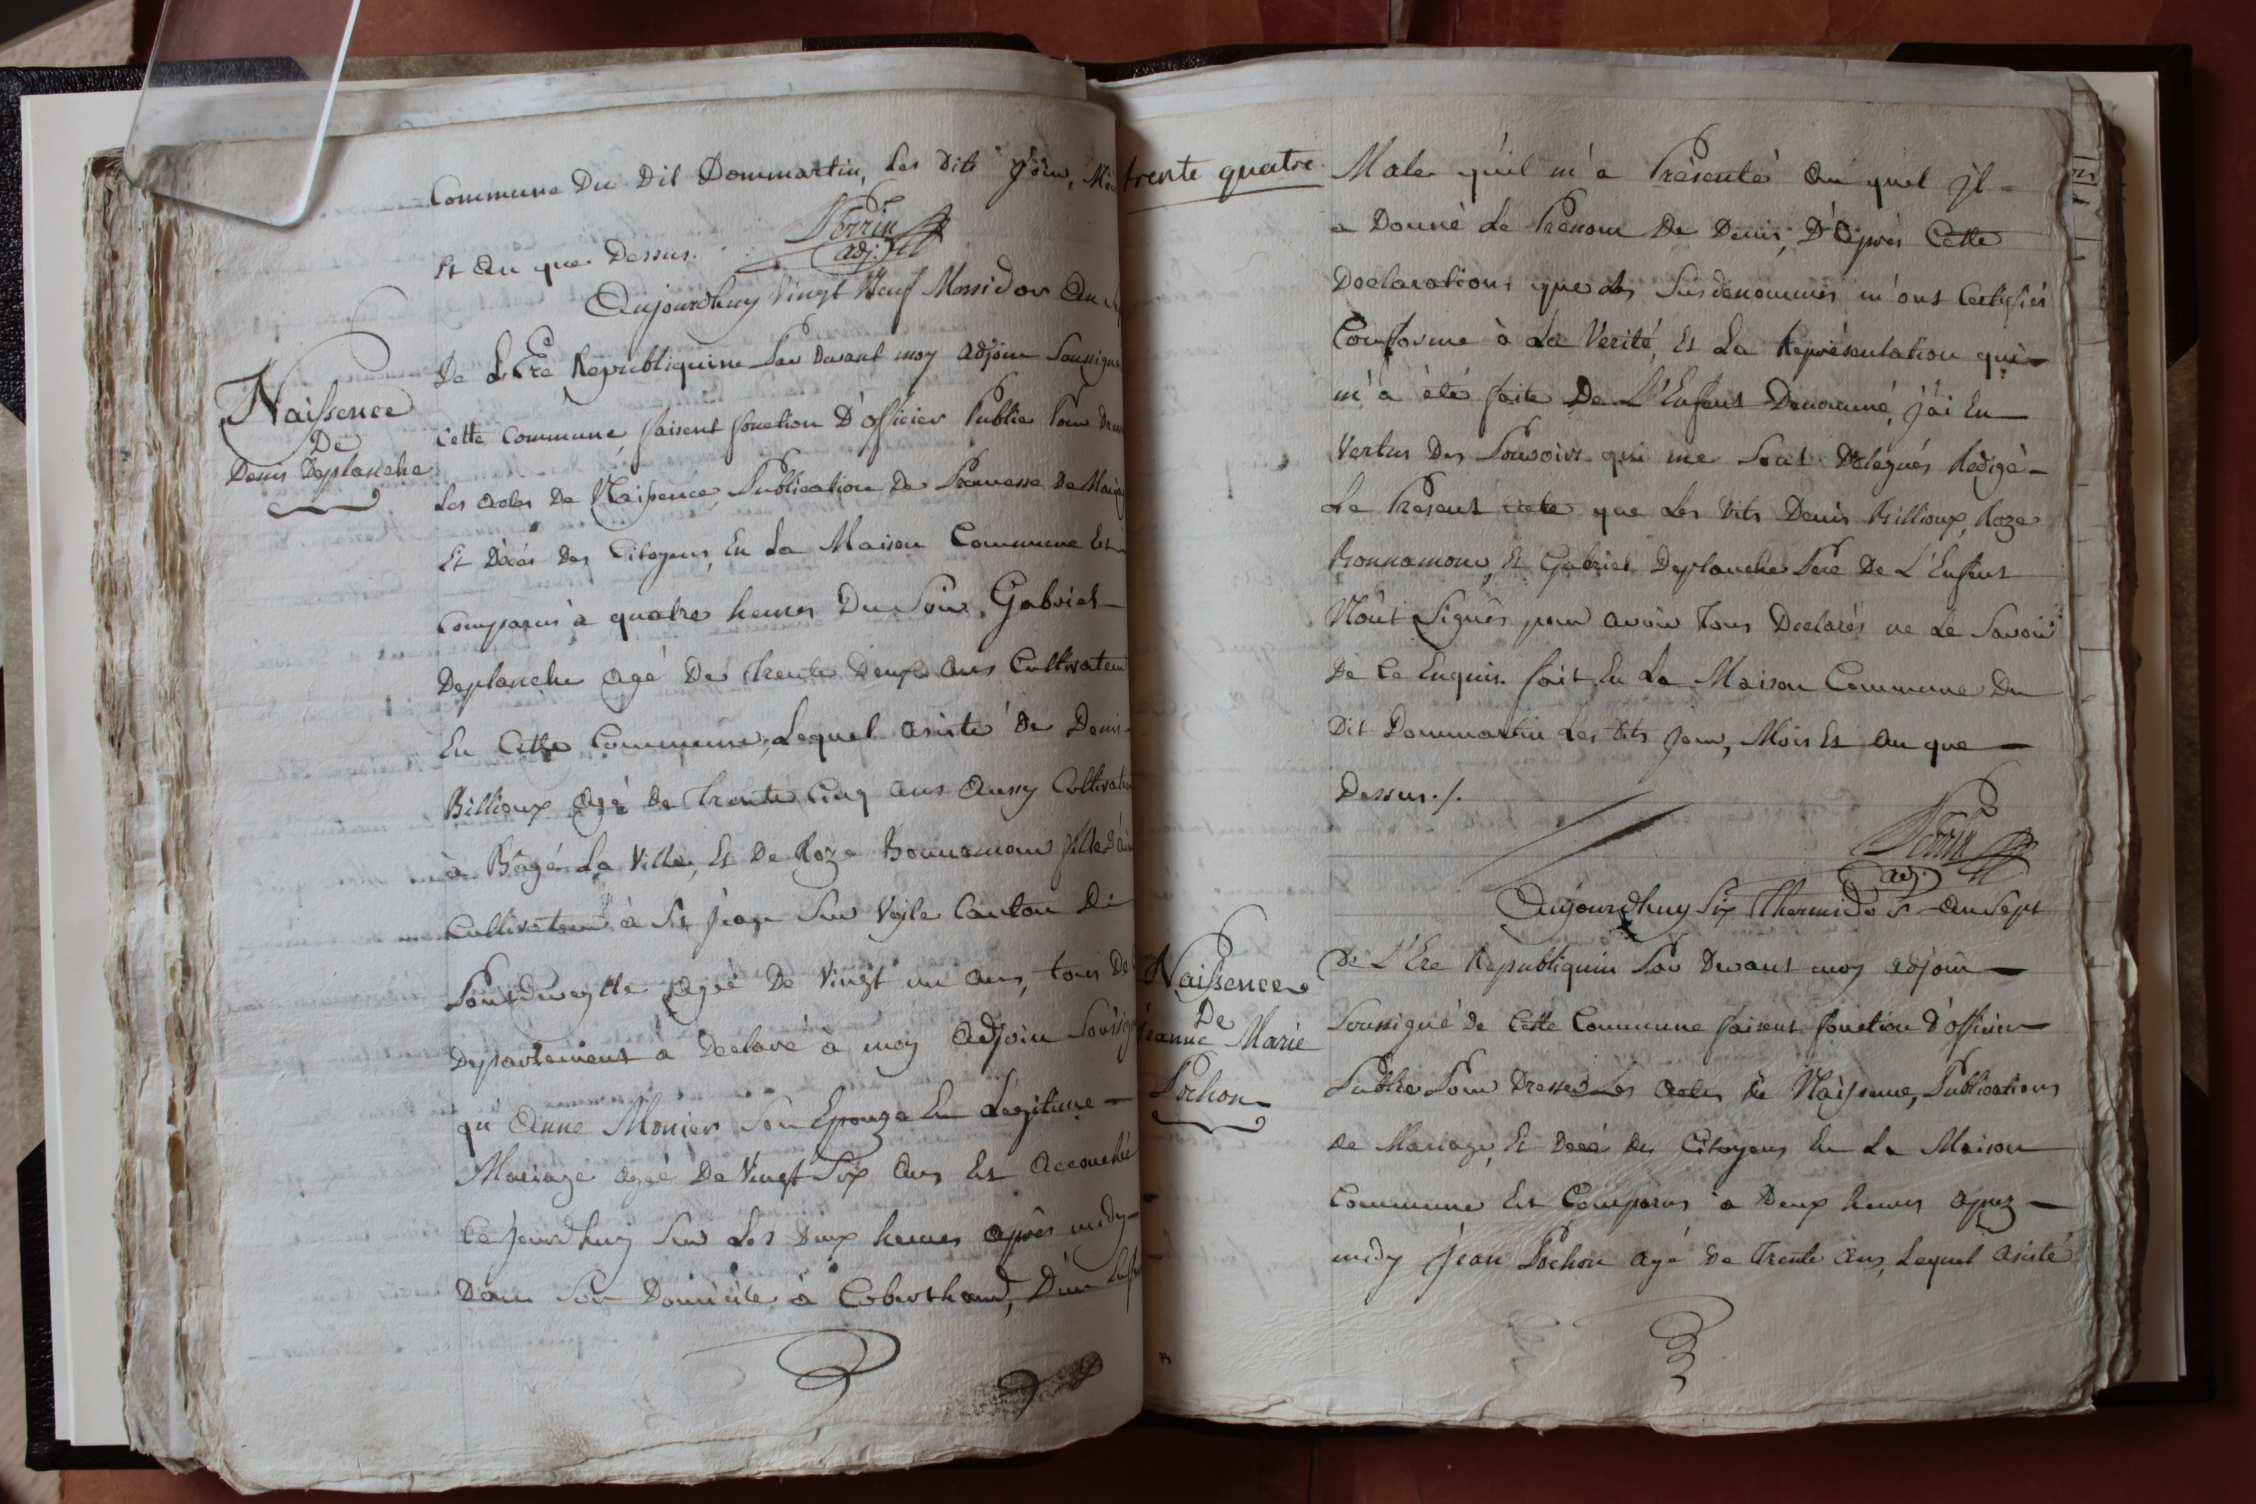 Commune Du Dit Dommartin, Les Dits jour,
Et An que Dessus.
Perrin
adj.
Aujourdhuy Vingt Neuf Messidor An
De L'Ere Republiquine Par Devant moy Adjoin Soussigne
Naissence
De
Denis Deplanche
Cette Commune, faisent fonction D'officier Public Pour
Les actes De Naissence, Publication De Promesse De
Et Décés Des Citoyens, En La Maison Commune Est
Comparus à quatre heures Du Soir, Gabriel
Deplanche agé De Trente Deux ans Cultivateur
En Cette Commune, Lequel asisté De Denis
Billioux agé De Trente Cinq ans Aussy Cultivateur
à Bâgé La Ville, Et De Roze Bonnamour fille
Cultivateur à St Jean Sur Veyle Canton De
Pontdeveylle agée De Vingt un ans, tous De
Departement a Declaré à moy Adjoin
qu'Anne Monier Son Epouze En Légitime
Mariage agée De Vingt Six ans Est Accouchée
Ce Jourdhuy Sur Les Deux heures après midy
Dans Son Domicile à Coberthoud, D'un
trente quatre.
Male qu'il m'a Présenté Au quel Jl
a Donné Le Prénom De Denis, D'Après Cette
Declarations que Les Susdénommés m'ont Certifiés
Conforme à La Verité, Et La Représentation qui
m'a été faite De L'Enfent Dénommé, j'ai En
Vertus Des Pouvoirs qui me Sont Délégués Redigé
Le Présent acte que Les Dits Denis Billioux, Roze
Bonnamour, Et Gabriel Deplanche Père De L'Enfent
N'ont Signés pour avoir Tous Declarés ne Le Savoir
De Ce Enquis. fait En La Maison Commune Du
Dit Dommartin Les Dits Jour, Mois Et An que
Dessus./.
Perrin
adj.
Aujourdhuy Six Thermidor An Sept
Naissence
De
Jeanne Marie
Pochon
De L'Ere Republiquin Par Devant moy adjoin
Soussigné de Cette Commune faisent fonction D'officier
Public Pour Dresser Les actes De Naissence, Publications
de Mariage, Et Décé Des Citoyens En La Maison
Commune Est Comparus à Deux heures aprez
midy Jean Pochon agé De Trente ans, Lequel asisté